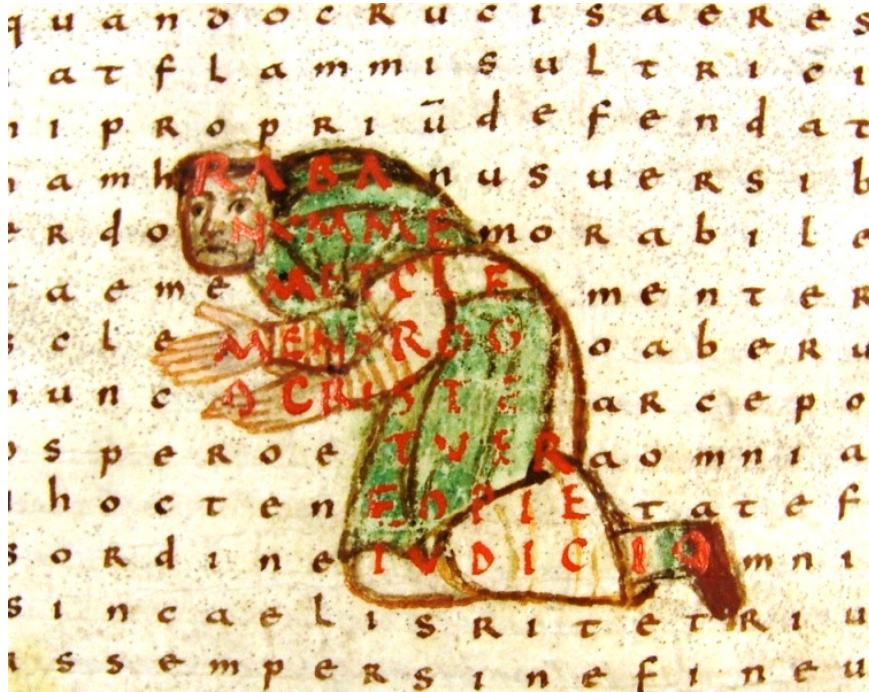 quandocrucisaeres
atflammisultrici
ipropriūdefendat
amhRABAnusuersib
erdoNVMMEmorabile
taemeMETCLEmenter
scleMENSROGoaberu
nuncOCRISTEarcepo
osperoeTVERaomnia
hoctenEOPIEtatef
sordineIVDICIOmni
sincaelisritetriu
assempersinefineu